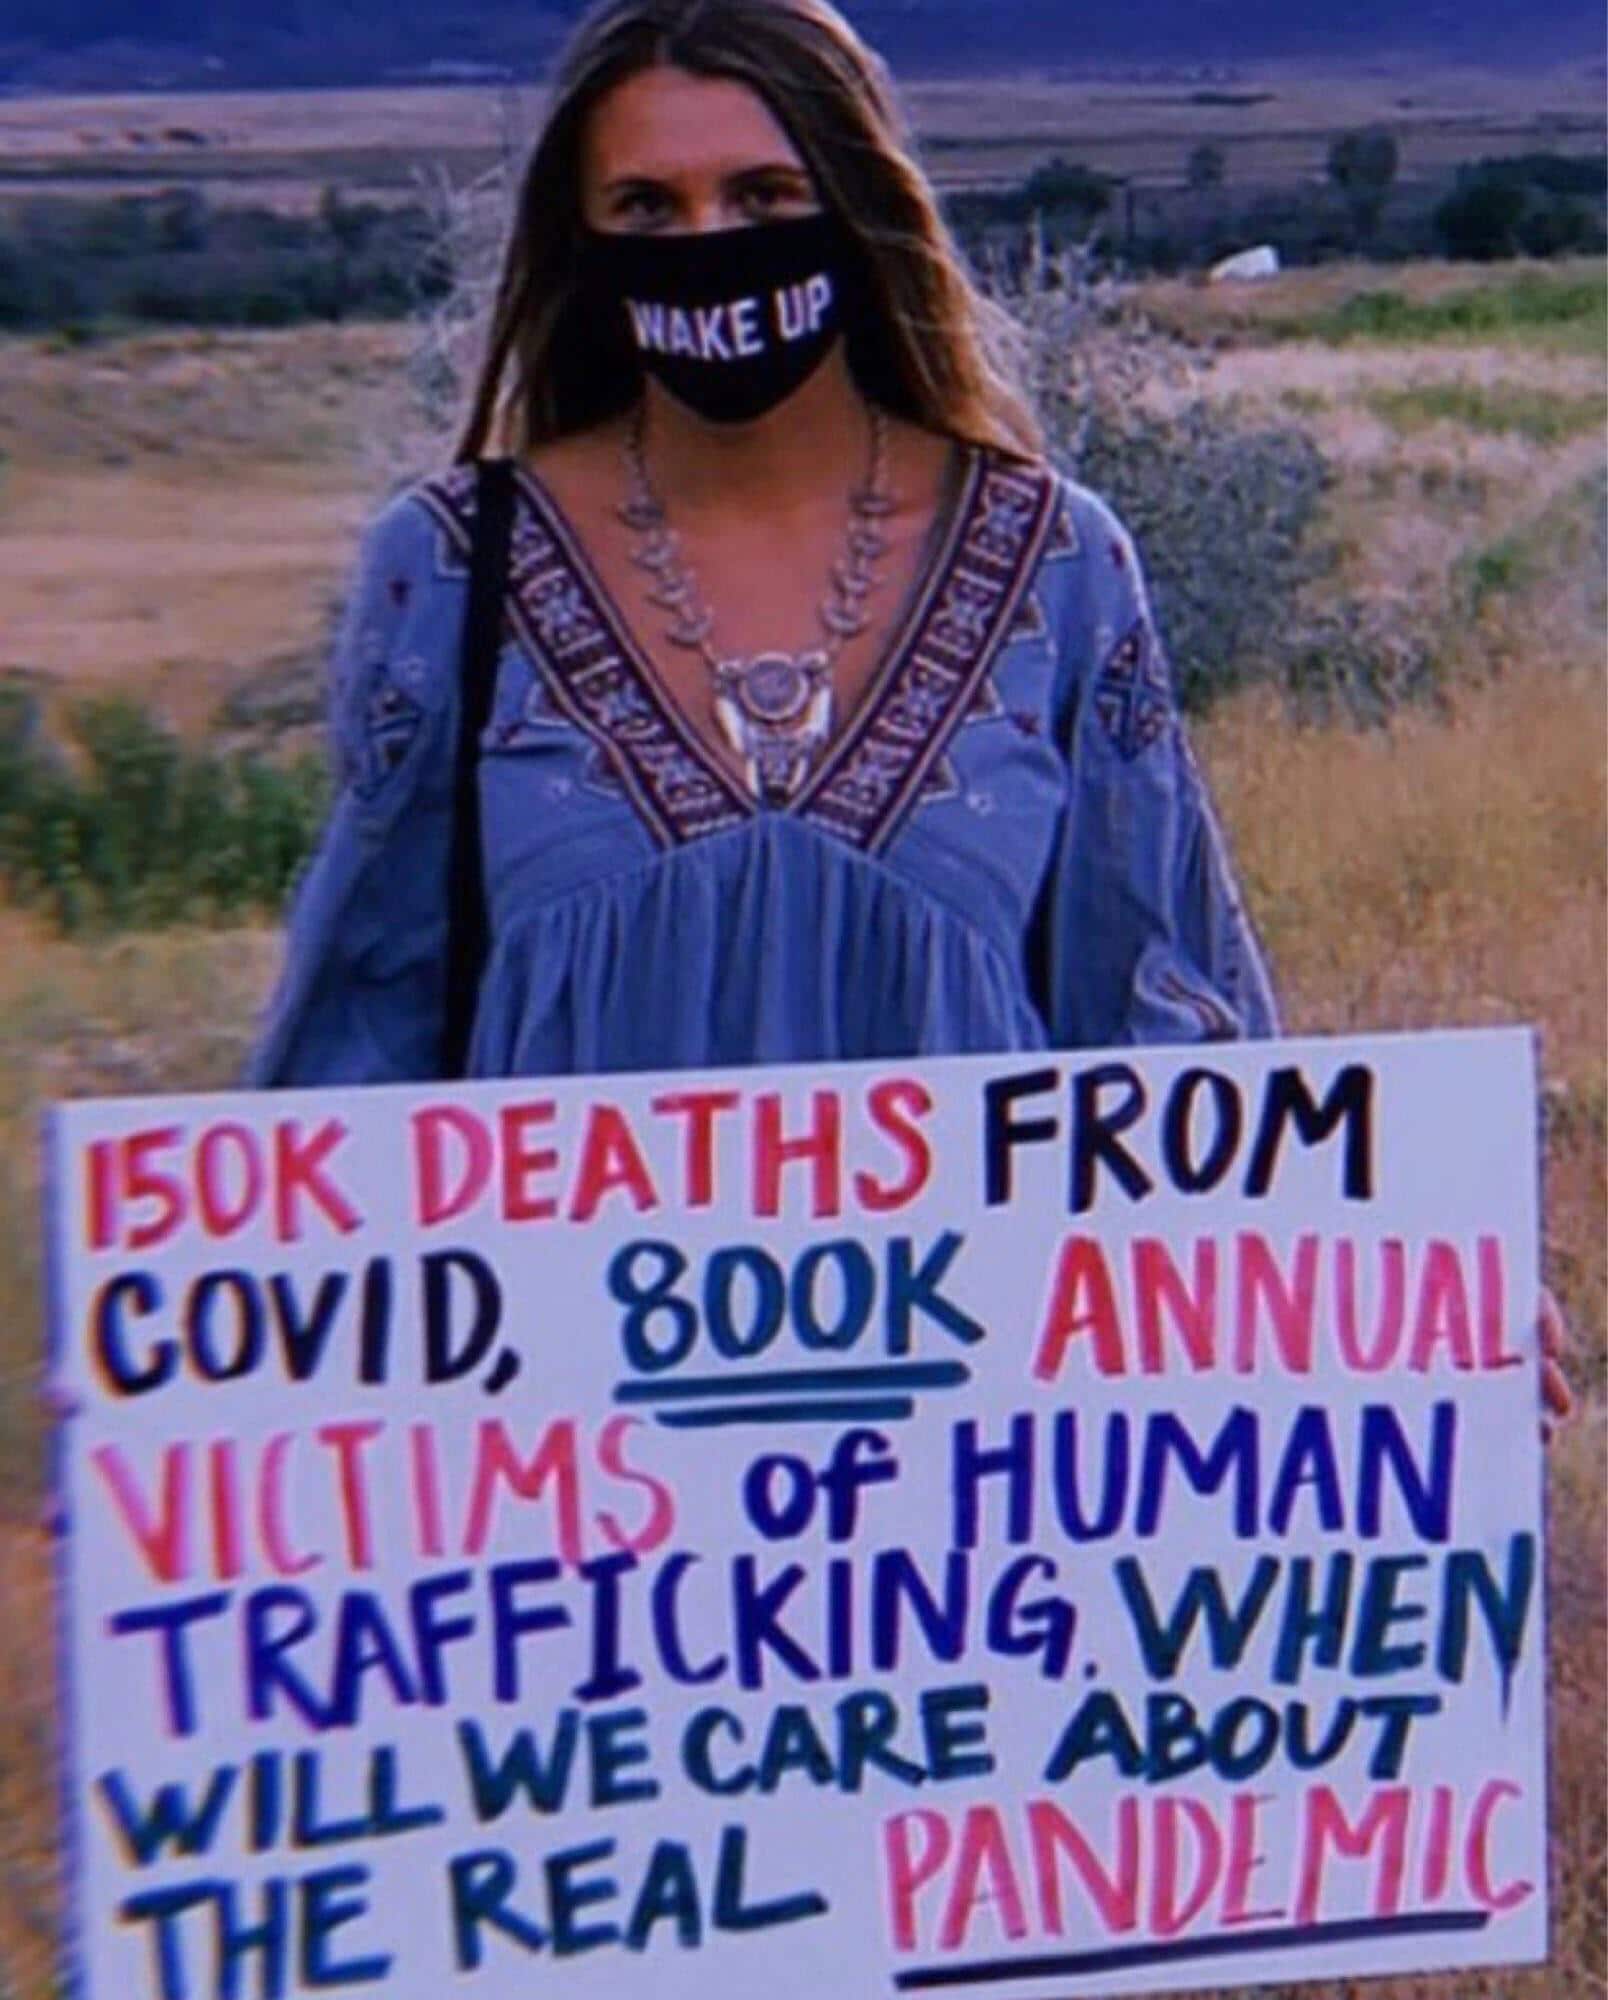 WAKE UP
150K DEATHS FROM
COVID, 800K ANNUAL
VICTIMS of HUMAN
TRAFFICKING. WHEN
WILL WE CARE ABOUT
THE REAL PANDEMIC